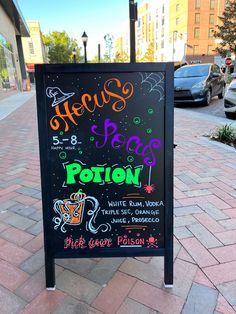 Hocus
Pocus
5-8
HAPPY HOUR
POTION
WHITE RUM, VODKA
TRIPLE SEC, ORANGE
JUICE, PROSECCO
Pick your POISON